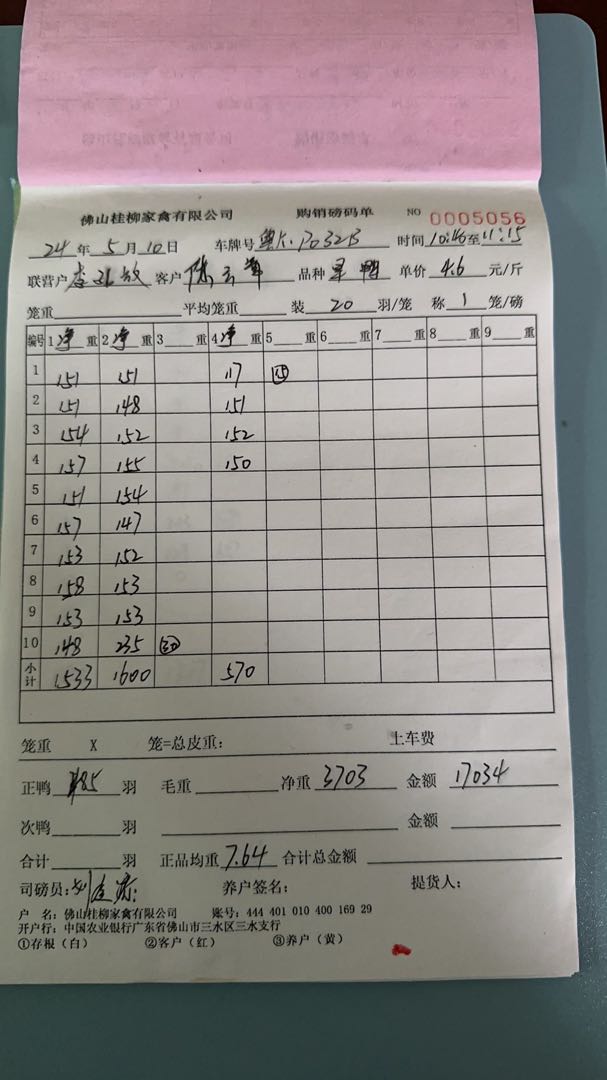 佛山桂柳家禽有限公司 购销磅码单 NO 0005056
24 年 5 月 10 日 车牌号 时间 10:46 至 11:15
联营户 客户 陈 品种 鸭 单价 4.6 元/斤
笼重 平均笼重 装 20 羽/笼 称 1 笼/磅
编号 1 净 重 2 净 重 3 重 4 净 重 5 重 6 重 7 重 8 重 9 重
1 151 151 117 15
2 151 148 151
3 154 152 152
4 157 155 150
5 151 154
6 157 147
7 153 152
8 158 153
9 153 153
10 148 235 30
小计 1533 1600 570
笼重 X 笼=总皮重: 上车费
正鸭 485 羽 毛重 净重 3703 金额 17034
次鸭 羽 金额
合计 羽 正品均重 7.64 合计总金额
司磅员: 刘 养户签名: 提货人:
户 名: 佛山桂柳家禽有限公司 账号: 444 401 010 400 169 29
开户行: 中国农业银行广东省佛山市三水区三水支行
①存根（白） ②客户（红） ③养户（黄）